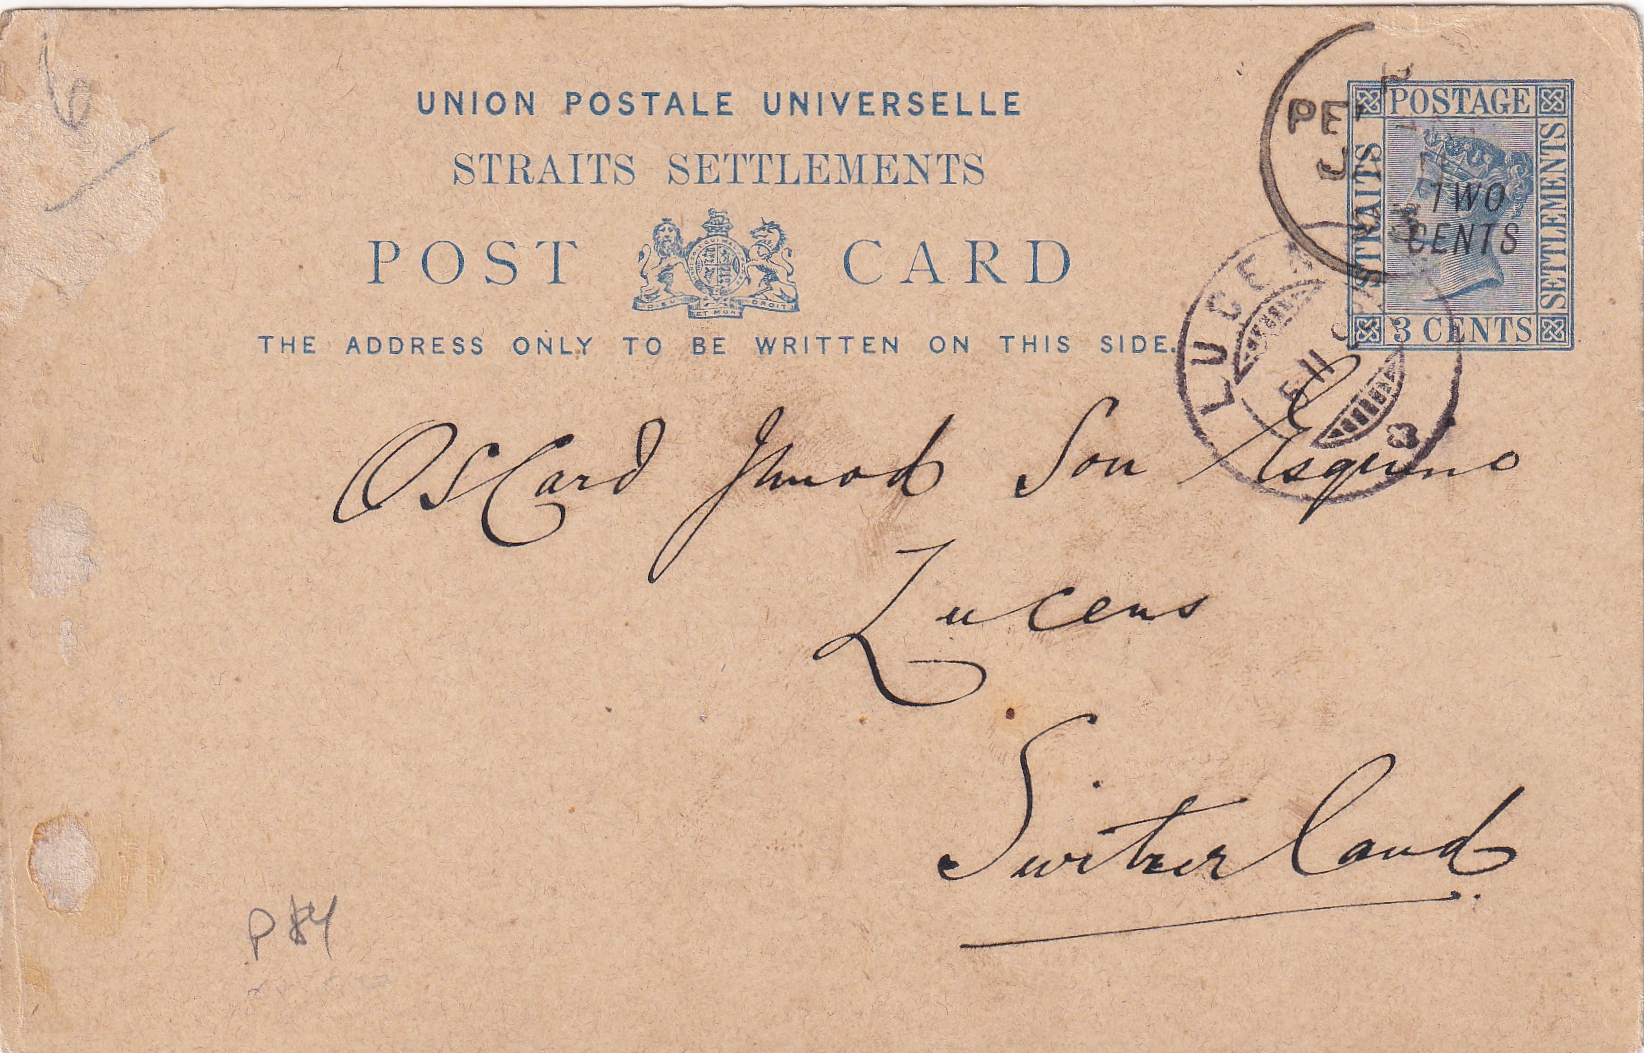 UNION POSTALE UNIVERSELLE
STRAITS SETTLEMENTS
POST CARD
THE ADDRESS ONLY TO BE WRITTEN ON THIS SIDE.
POSTAGE
STRAITS
SETTLEMENTS
TWO
CENTS
3 CENTS
LUCENS
5 II
OSCard Junod Son Esquino
Lucens
Switzerland
P $4